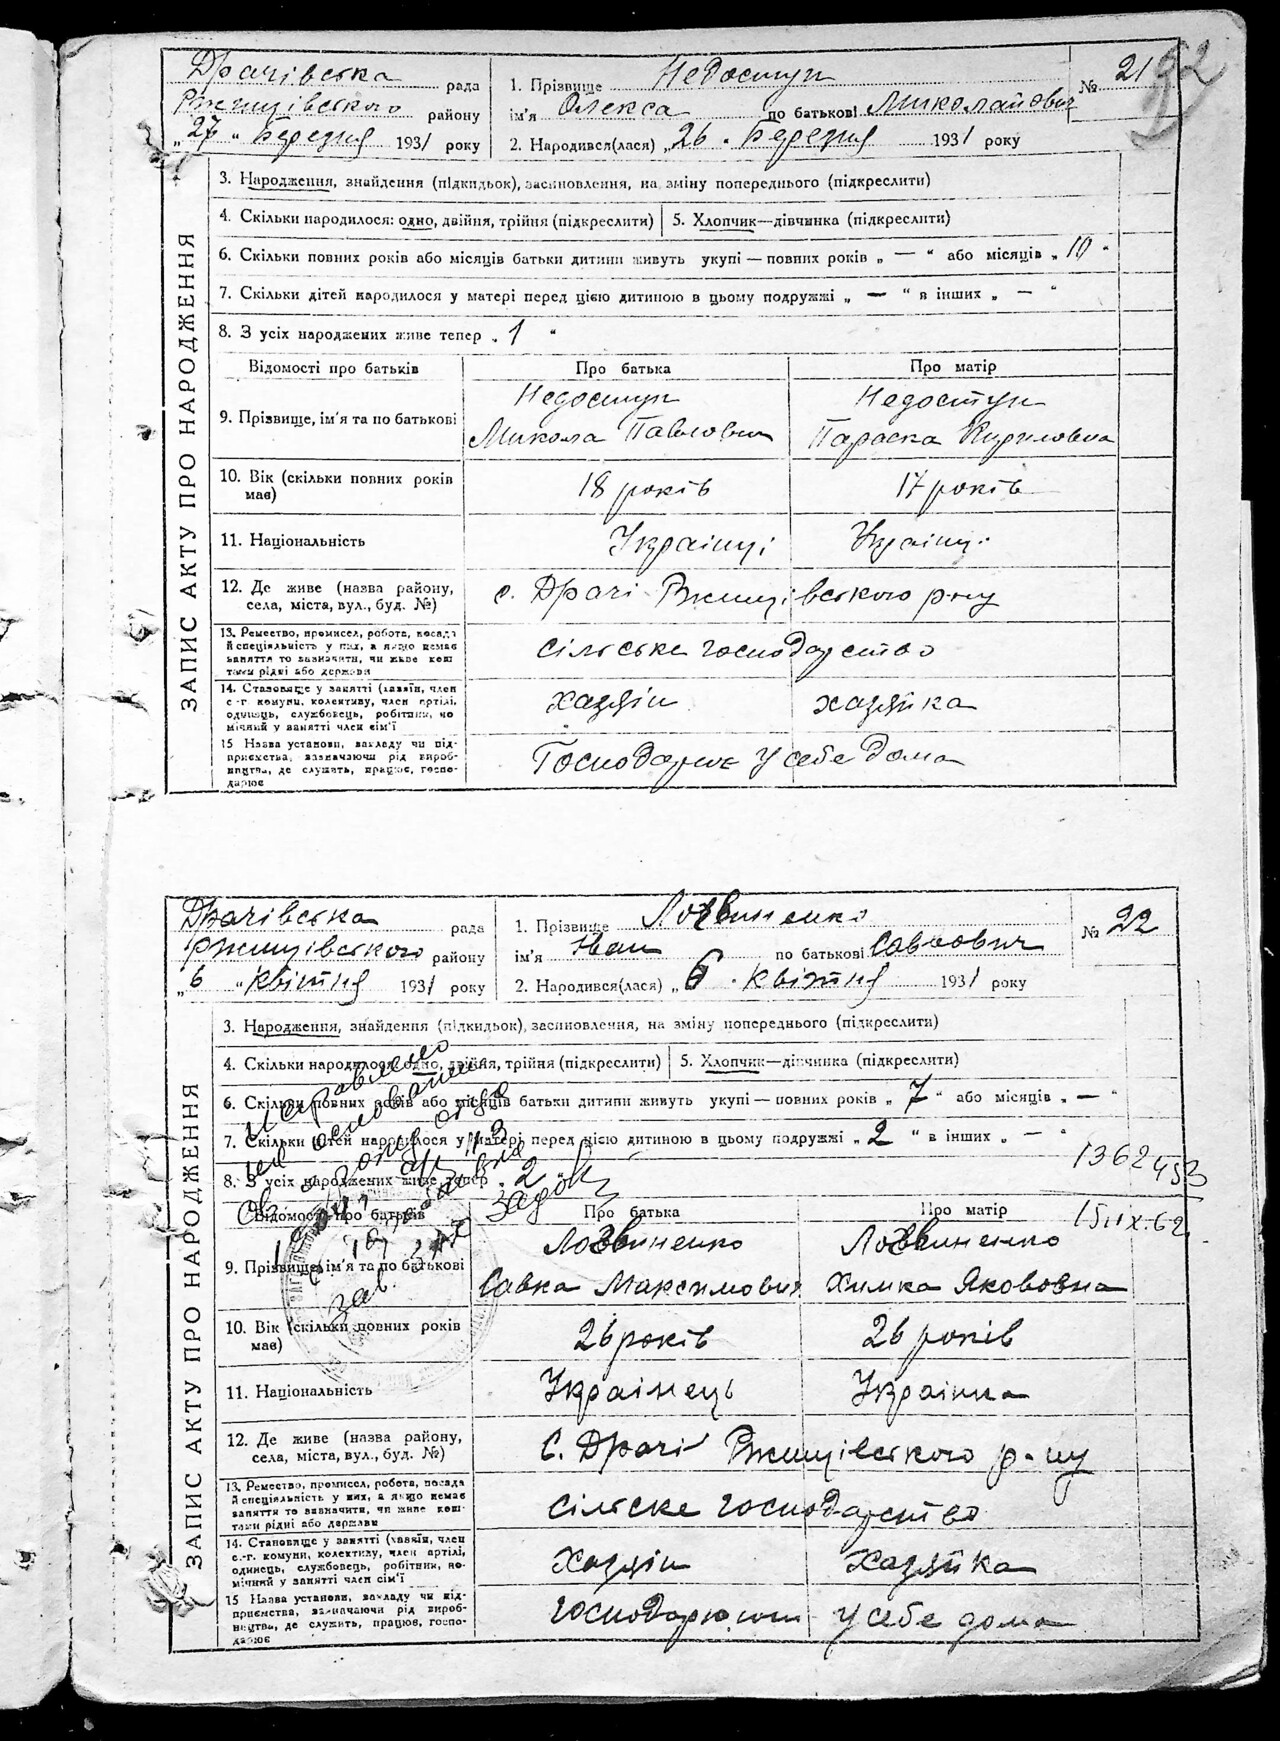 52
Драчівська рада
Ржищівського району
„27" Березня 1931 року
1. Прізвище Недоступ
ім'я Олекса по батькові Миколайович
2. Народився(лася) „26" Березня 1931 року
№ 21
ЗАПИС АКТУ ПРО НАРОДЖЕННЯ
3. Народження, знайдення (підкидьок), засиновлення, на зміну попереднього (підкреслити)
4. Скільки народилося: одно, двійня, трійня (підкреслити) 5. Хлопчик—дівчинка (підкреслити)
6. Скільки повних років або місяців батьки дитини живуть укупі — повних років „ — " або місяців „ 10 "
7. Скільки дітей народилося у матері перед цією дитиною в цьому подружжі „ — " в інших „ — "
8. З усіх народжених живе тепер „ 1 "
Відомості про батьків Про батька Про матір
9. Прізвище, ім'я та по батькові
Недоступ Недоступ
Микола Павлович Параска Кириловна
10. Вік (скільки повних років має) 18 років 17 років
11. Національність Українці Українці
12. Де живе (назва району, села, міста, вул., буд. №) с. Драчі Ржищівського р-ну
13. Ремество, промисел, робота, посада
й спеціяльність у них, а якщо немає
заняття то зазначити, чи живе кош
тами рідні або держави
сільське господарство
14. Становище у занятті (хазяїн, член
с.-г. комуни, колективу, член артілі,
одинець, службовець, робітник, по
мічний у занятті член сім'ї
хазяїн хазяйка
15 Назва установи, закладу чи під-
приємства, зазначаючи рід вироб-
ництва, де служить, працює, госпо-
дарює
Господарює у себе дома
Драчівська рада
Ржищівського району
„6" Квітня 1931 року
1. Прізвище Лозвиненко
ім'я Іван по батькові Савович
2. Народився(лася) „6" Квітня 1931 року
№ 22
ЗАПИС АКТУ ПРО НАРОДЖЕННЯ
3. Народження, знайдення (підкидьок), засиновлення, на зміну попереднього (підкреслити)
4. Скільки народилося: одно, двійня, трійня (підкреслити) 5. Хлопчик—дівчинка (підкреслити)
6. Скільки повних років або місяців батьки дитини живуть укупі — повних років „ 7 " або місяців „ — "
7. Скільки дітей народилося у матері перед цією дитиною в цьому подружжі „ 2 " в інших „ — "
8. З усіх народжених живе тепер „ 2 "
1362
453
исправлено
на основании
Відомості про батьків Про батька Про матір
9. Прізвище, ім'я та по батькові
Лозвиненко Лозвиненко
Савка Максимович Химка Якововна
10. Вік (скільки повних років має) 26 років 26 років
11. Національність Українець Українка
12. Де живе (назва району, села, міста, вул., буд. №) С. Драчі Ржищівського р-ну
13. Ремество, промисел, робота, посада
й спеціяльність у них, а якщо немає
заняття то зазначити, чи живе кош-
тами рідні або держави
сільске господарство
14. Становище у занятті (хазяїн, член
с.-г. комуни, колективу, член артілі,
одинець, службовець, робітник, по-
мічний у занятті член сім'ї
хазяїн хазяйка
15 Назва установи, закладу чи під-
приємства, зазначаючи рід вироб-
ництва, де служить, працює, госпо-
дарює
господарюют у себе дома